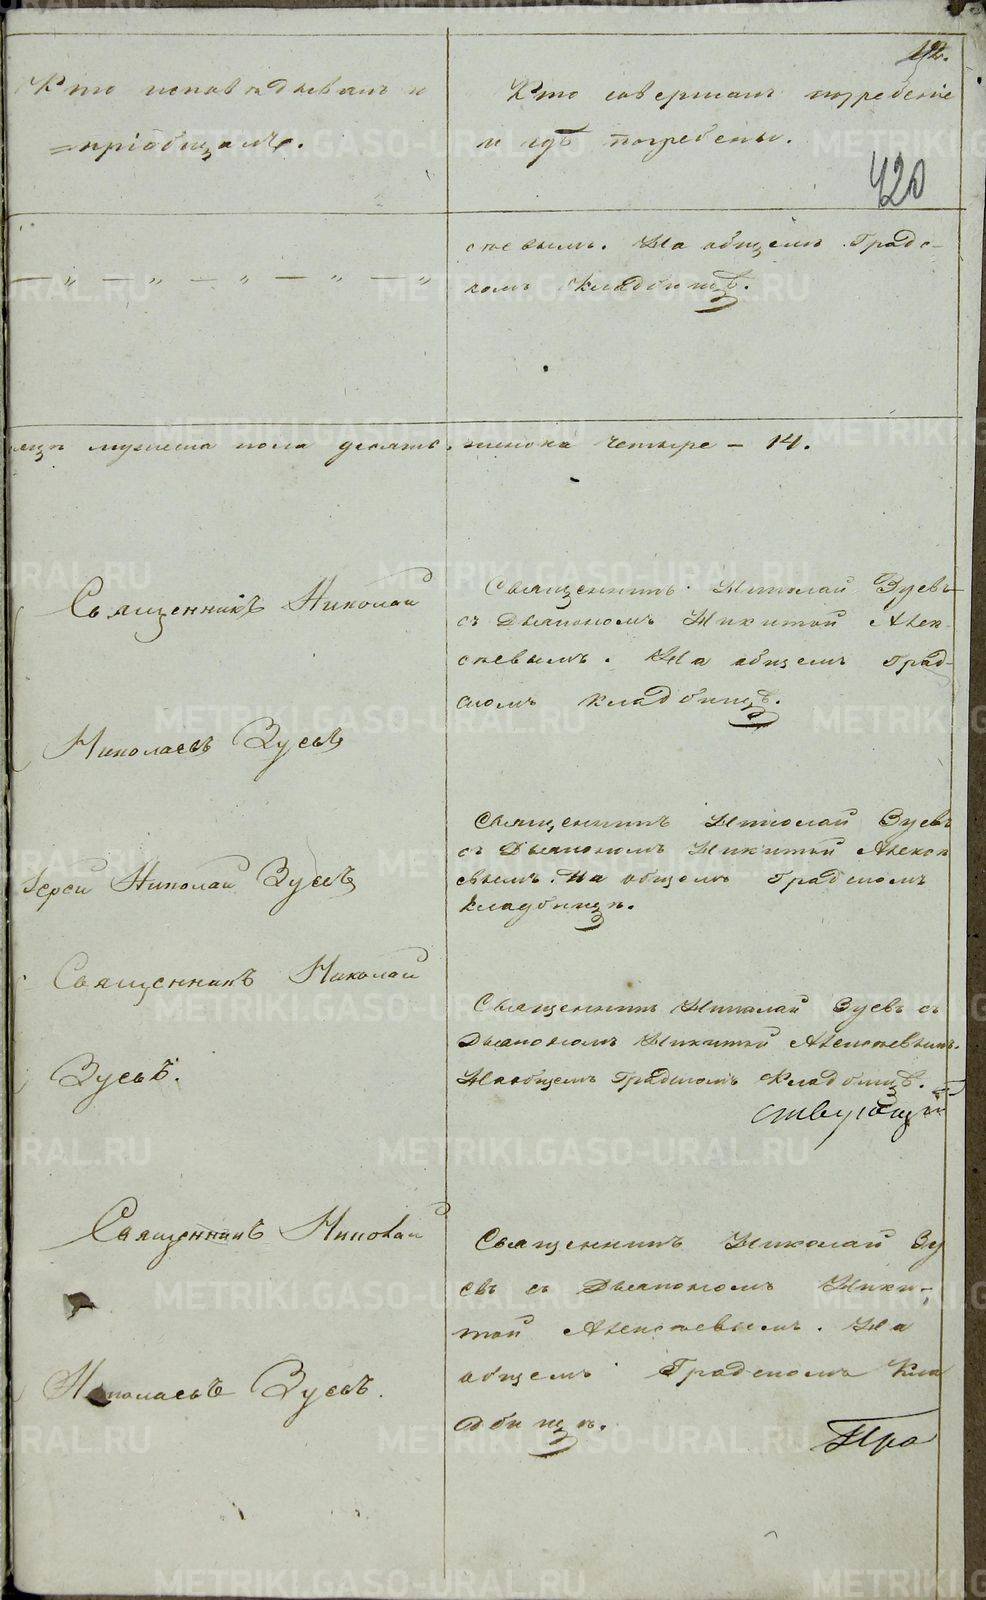 192.
Кто исповѣдывалъ и
пріобщалъ.
Кто совершалъ погребеніе
и гдѣ погребены.
420
сѣевымъ. На общемъ Градс-
комъ Кладбищѣ.
— „ — „ — „ — „ — „
мужеска пола десять. женска четыре — 14.
Священникъ Николай
Николаевъ Зуевъ
Священникъ Николай Зуевъ
съ Дьякономъ Никитой Алек-
сѣевымъ. На общемъ Град-
скомъ кладбищѣ.
Іерей Николай Зуевъ
Священникъ Николай Зуевъ
съ Дьякономъ Никитой Алексѣ
евымъ. На общемъ Градскомъ
кладбищѣ.
Священникъ Николай
Зуевъ.
Священникъ Николай Зуевъ съ
Дьякономъ Никитой Алексѣевымъ.
На общемъ Градскомъ Кладбищѣ.
ствующій
Священникъ Николай
Николаевъ Зуевъ.
Священникъ Николай Зу
евъ съ Дьякономъ Ники-
той Алексѣевымъ. На
общемъ Градскомъ Кла
дбищѣ.
Пра